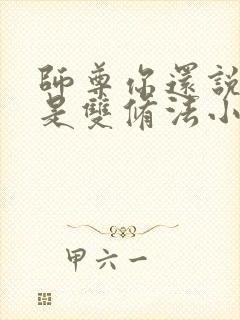 師尊你還說
是雙脩法小
甲六一